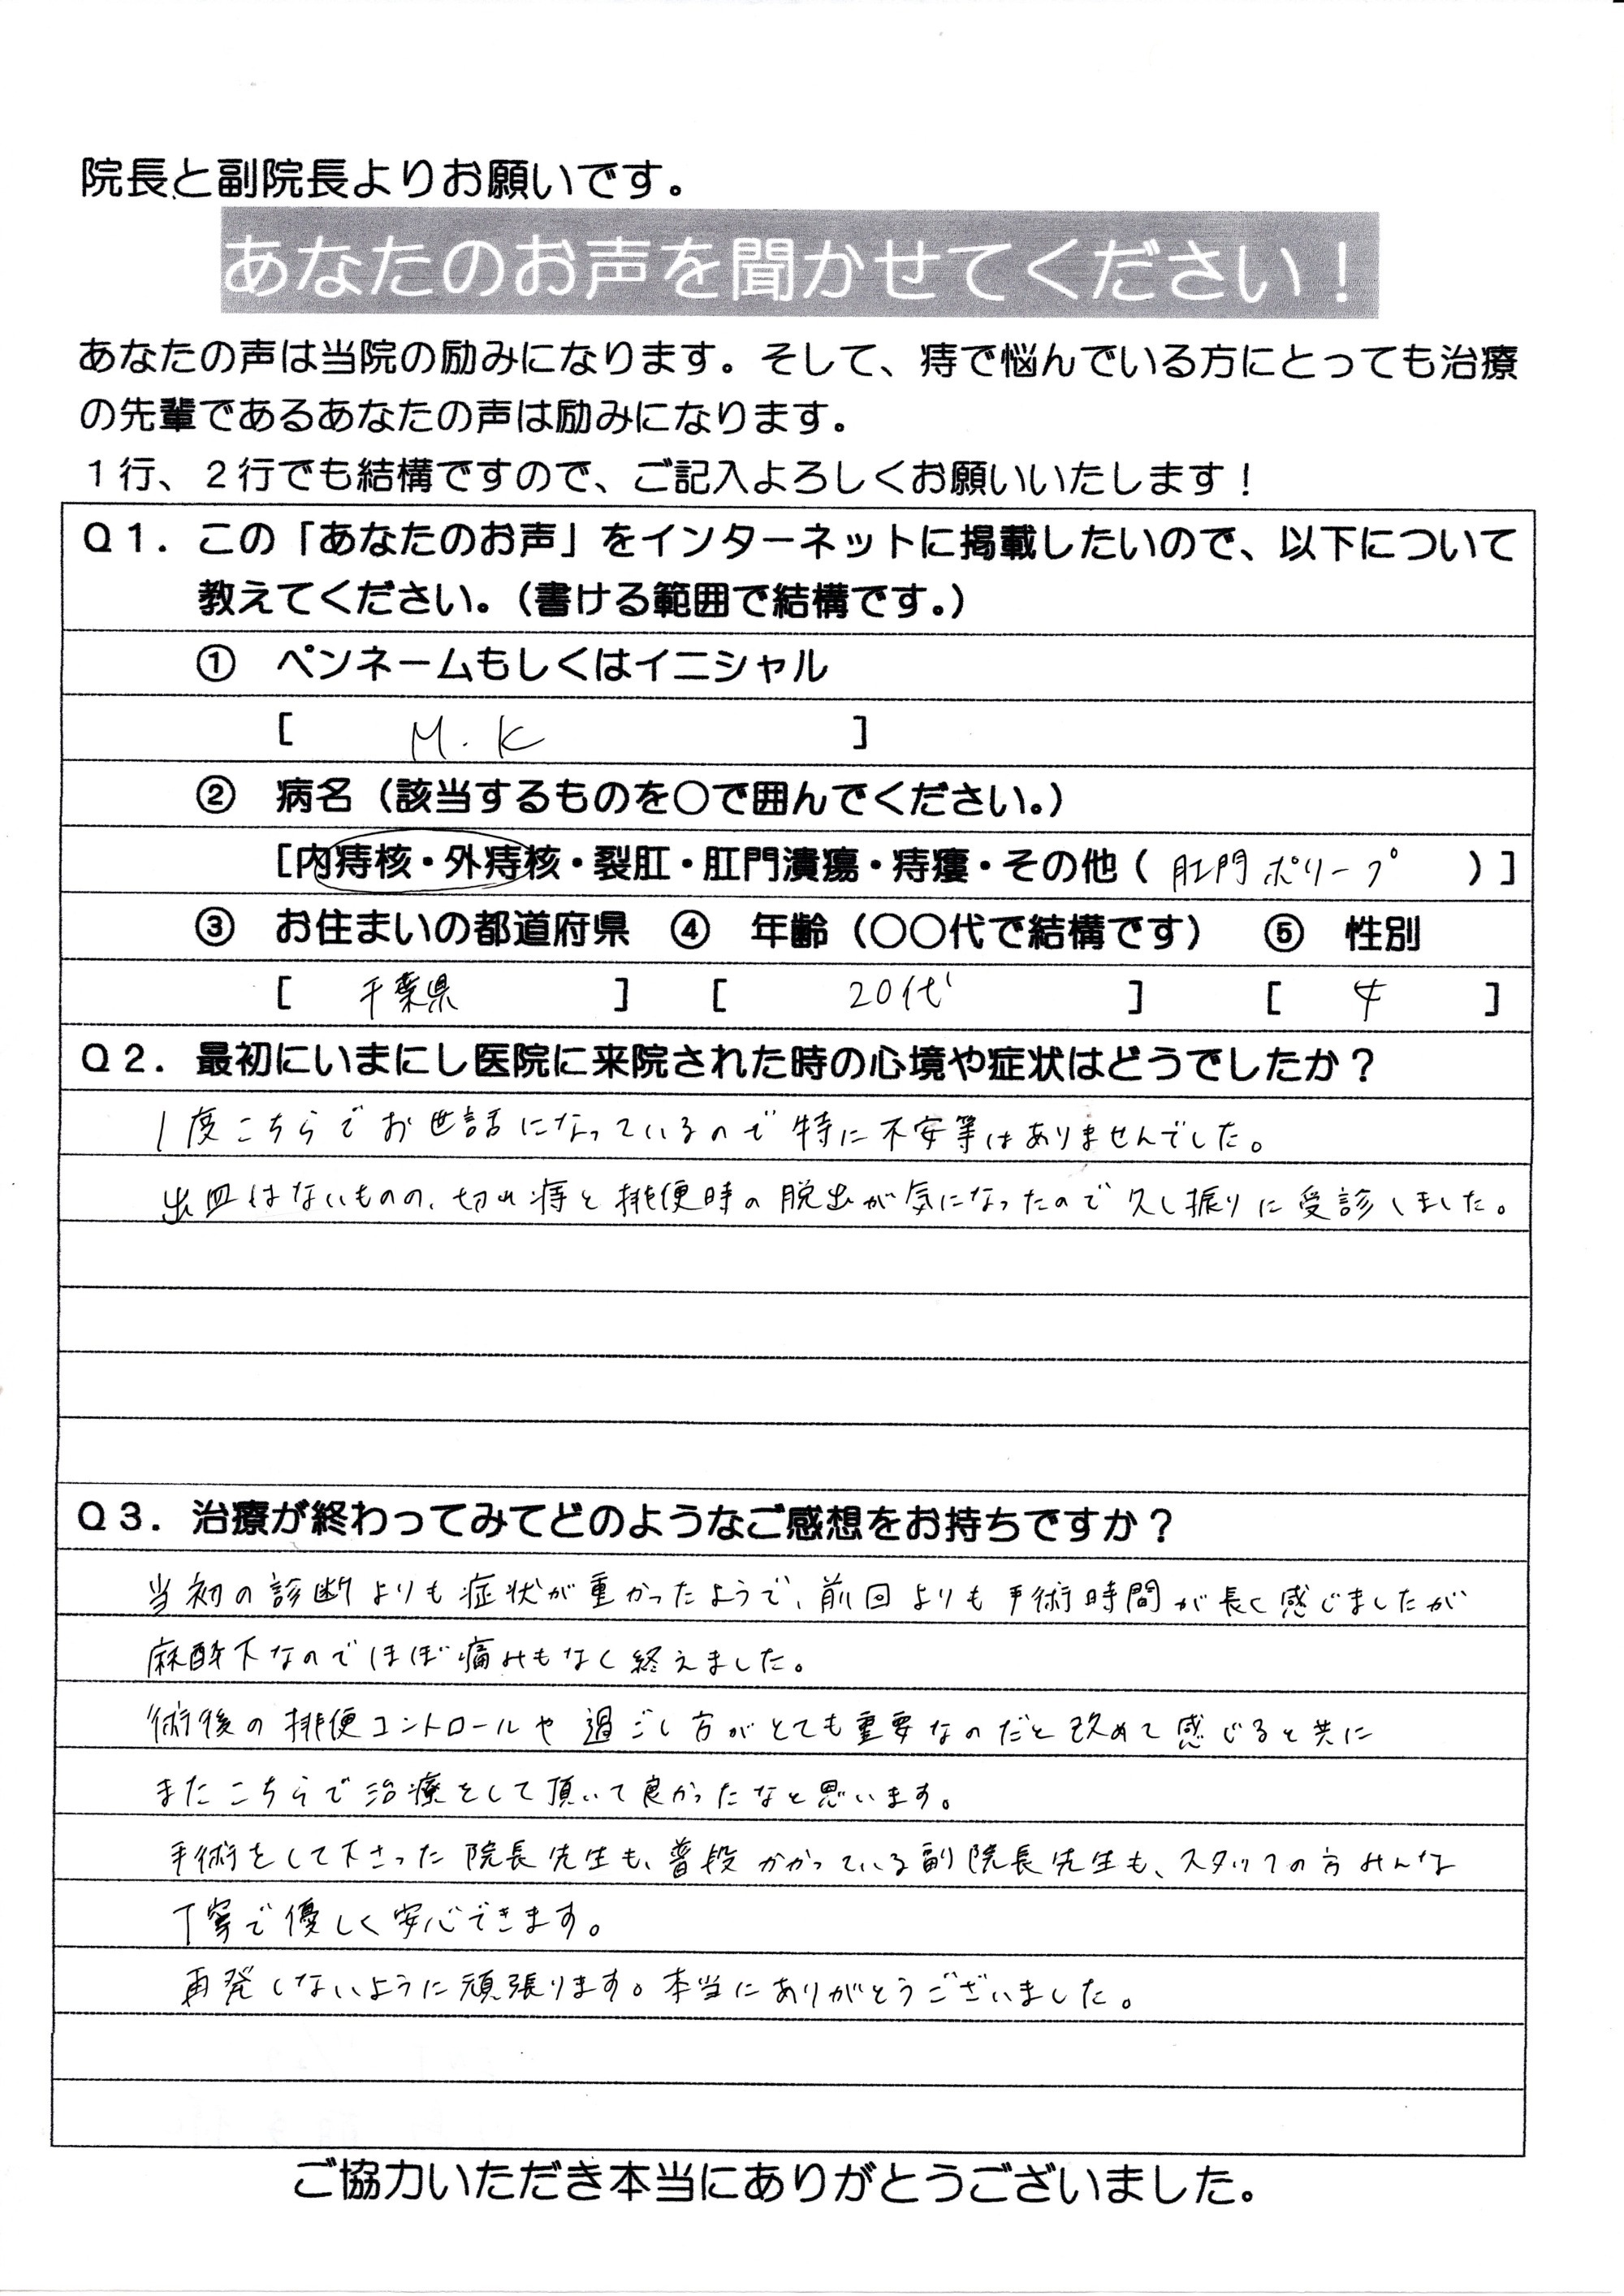 院長と副院長よりお願いです。
あなたのお声を聞かせてください！
あなたの声は当院の励みになります。そして、痔で悩んでいる方にとっても治療
の先輩であるあなたの声は励みになります。
１行、２行でも結構ですので、ご記入よろしくお願いいたします！
Ｑ１．この「あなたのお声」をインターネットに掲載したいので、以下について
教えてください。（書ける範囲で結構です。）
① ペンネームもしくはイニシャル
[ M.K ]
② 病名（該当するものを○で囲んでください。）
[内痔核・外痔核・裂肛・肛門潰瘍・痔瘻・その他（ 肛門ポリープ ）]
③ お住まいの都道府県 ④ 年齢（○○代で結構です） ⑤ 性別
[ 千葉県 ] [ 20代 ] [ 女 ]
Ｑ２．最初にいまにし医院に来院された時の心境や症状はどうでしたか？
1度こちらでお世話になっているので特に不安等はありませんでした。
出血はないものの、切れ痔と排便時の脱出が気になったので久し振りに受診しました。
Ｑ３．治療が終わってみてどのようなご感想をお持ちですか？
当初の診断よりも症状が重かったようで、前回よりも手術時間が長く感じましたが
麻酔下なのでほぼ痛みもなく終えました。
術後の排便コントロールや過ごし方がとても重要なのだと改めて感じると共に
またこちらで治療をして頂いて良かったなと思います。
手術をして下さった院長先生も、普段かかっている副院長先生も、スタッフの方みんな
丁寧で優しく安心できます。
再発しないように頑張ります。本当にありがとうございました。
ご協力いただき本当にありがとうございました。